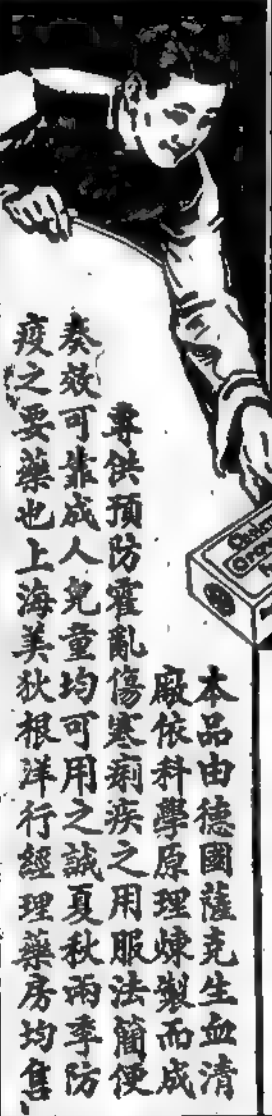 本品由德國薩克生血清
廠依科學原理煉製而成
專供預防霍亂傷寒痢疾之用服法簡便
奏效可靠成人兒童均可用之誠夏秋兩季防
疫之要藥也上海美狄根洋行經理藥房均售